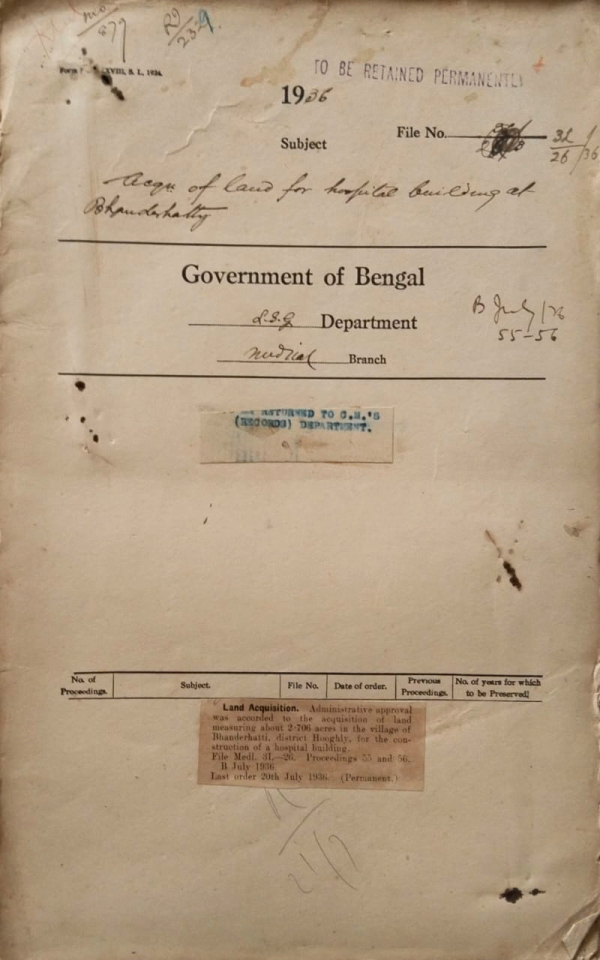 mo
879
R9
2329
XVIII, S. I., 1934.
TO BE RETAINED PERMANENTLY
1936
Subject
File No.
3L
26/36
Acqn. of land for hospital building at
Bhanderhatty
Government of Bengal
L.S.G Department
Medical Branch
B July/36
55-56
RETURNED TO C.S.'S
(RECORDS) DEPARTMENT.
No. of Proceedings.
Subject.
File No.
Date of order.
Previous Proceedings.
No. of years for which to be Preserved.
Land Acquisition. Administrative approval
was accorded to the acquisition of land
measuring about 2·706 acres in the village of
Bhanderhatti, district Hooghly, for the con-
struction of a hospital building.
File Medl. 3L—26. Proceedings 55 and 56,
B July 1936
Last order 20th July 1936. (Permanent.)